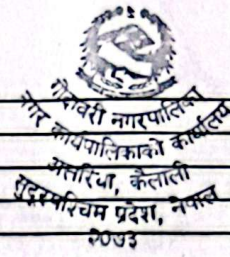 गोदावरी नगरपालिका
नगर कार्यपालिकाको कार्यालय
अत्तरिया, कैलाली
सुदूरपश्चिम प्रदेश, नेपाल
२०७३